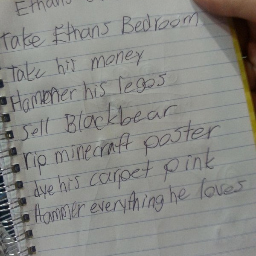 Ethans
Take Ethans Bedroom
Take his money
Hammer his legos
Sell Blackbear
rip minecraft poster
dye his carpet pink
Hammer everything he loves